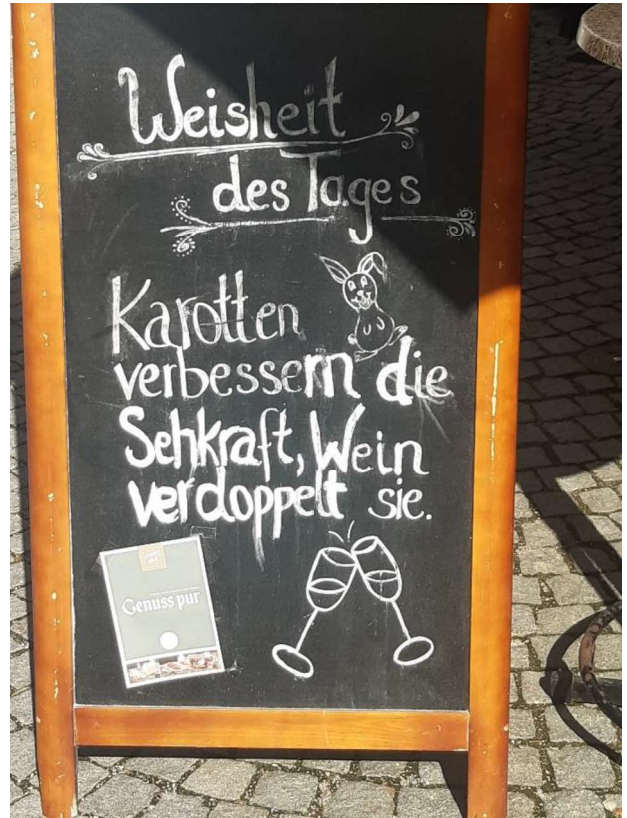 Weisheit
des Tages
Karotten
verbessern die
Sehkraft, Wein
verdoppelt sie.
Genuss pur